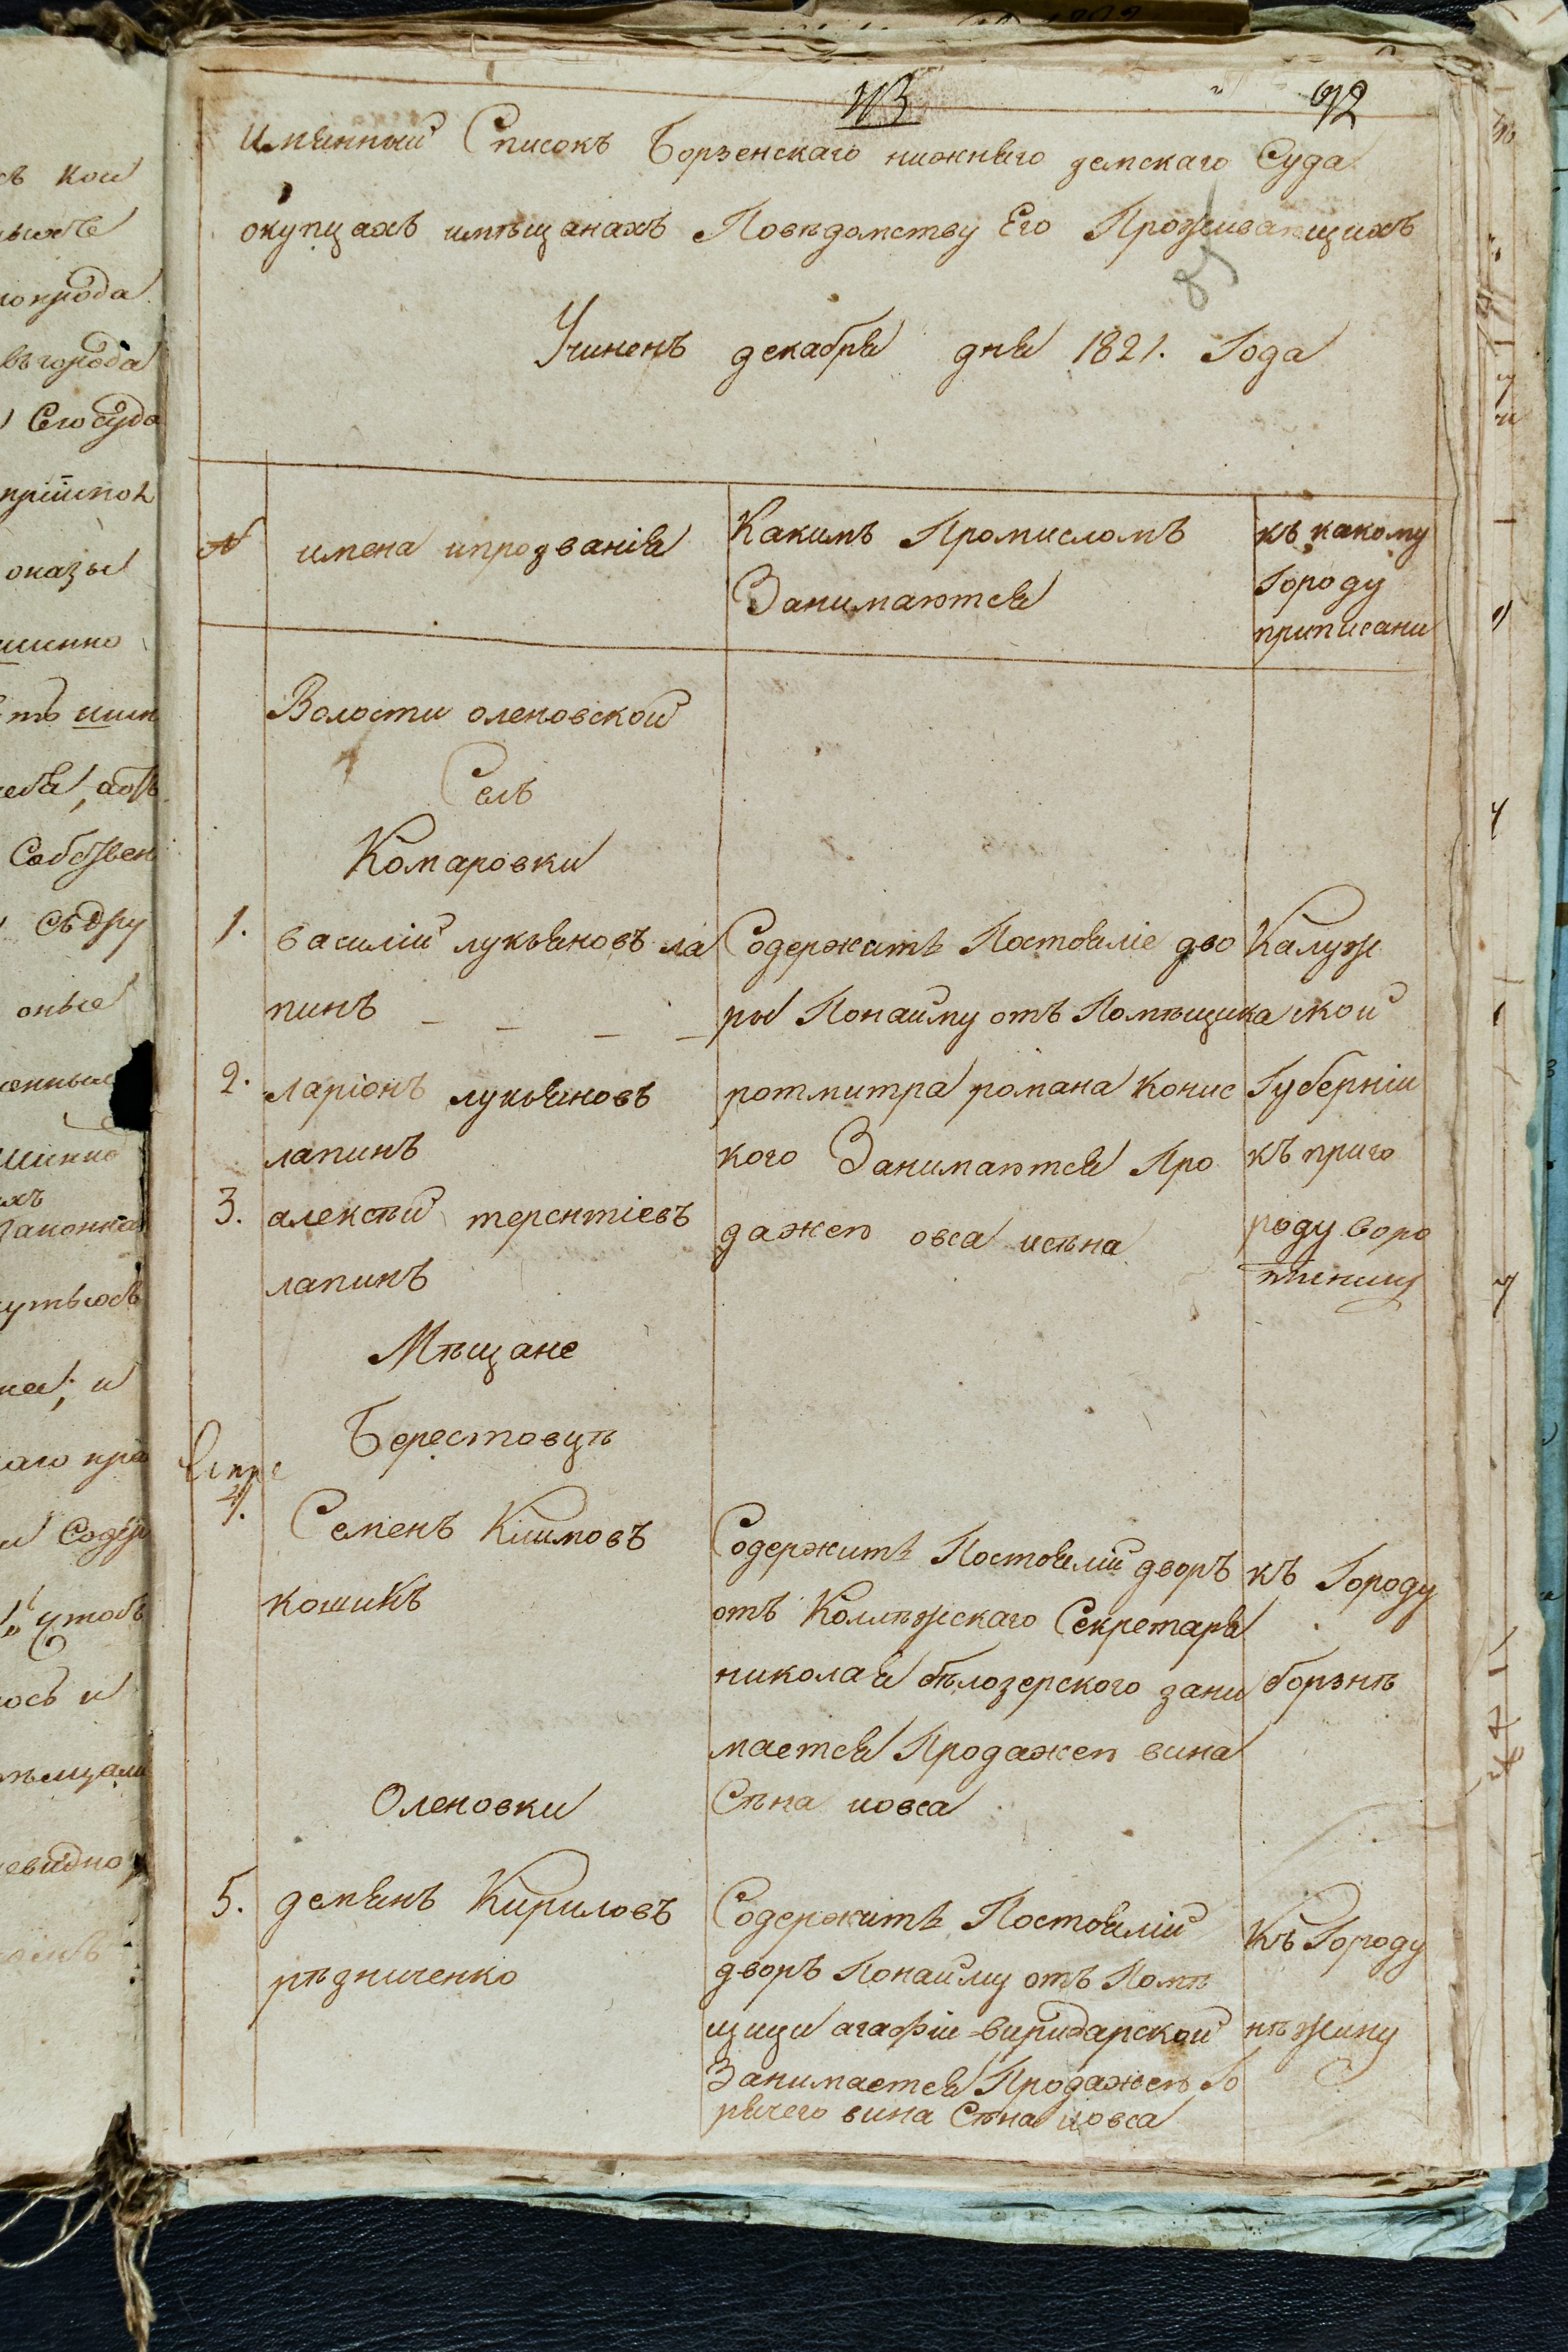 92
Имянный Списокъ Борзенскаго нижняго земскаго Суда
окупцахъ имѣщанахъ Повѣдомству Его Проживающихъ
Учиненъ декабря дня 1821. Года
№
имена ипрозванія
Какимъ Промисломъ
Занимаются
къ какому
Городу
приписани
Волости оленовской
Селъ
Комаровки
1.
василій лукьяновъ ла
пинъ
2.
ларіонъ лукьяновъ
лапинъ
3.
алексѣй терентіевъ
лапинъ
Содержитъ Постоялие дво
ры Понайму отъ Помѣщика
ротмитра романа Конис
кого Занимаются Про
дажею овса исѣна
Калуж
ской
Губерніи
къ приго
роду воро
тинску
Мѣщане
Берестовцѣ
4.
Семенъ Климовъ
кошикъ
Содержитъ Постоялій дворъ
отъ Коллѣжскаго Секретаря
николая бѣлозерского зани
мается Продажею вина
Сѣна иовса
къ Городу
борзнѣ
Оленовки
5.
демянъ Кириловъ
рѣдниченко
Содержитъ Постоялій
дворъ Понайму отъ Помѣ
щици агафіи виридарской
Занимается Продажею Го
рячего вина Сѣна иовса
Къ Городу
нѣжину